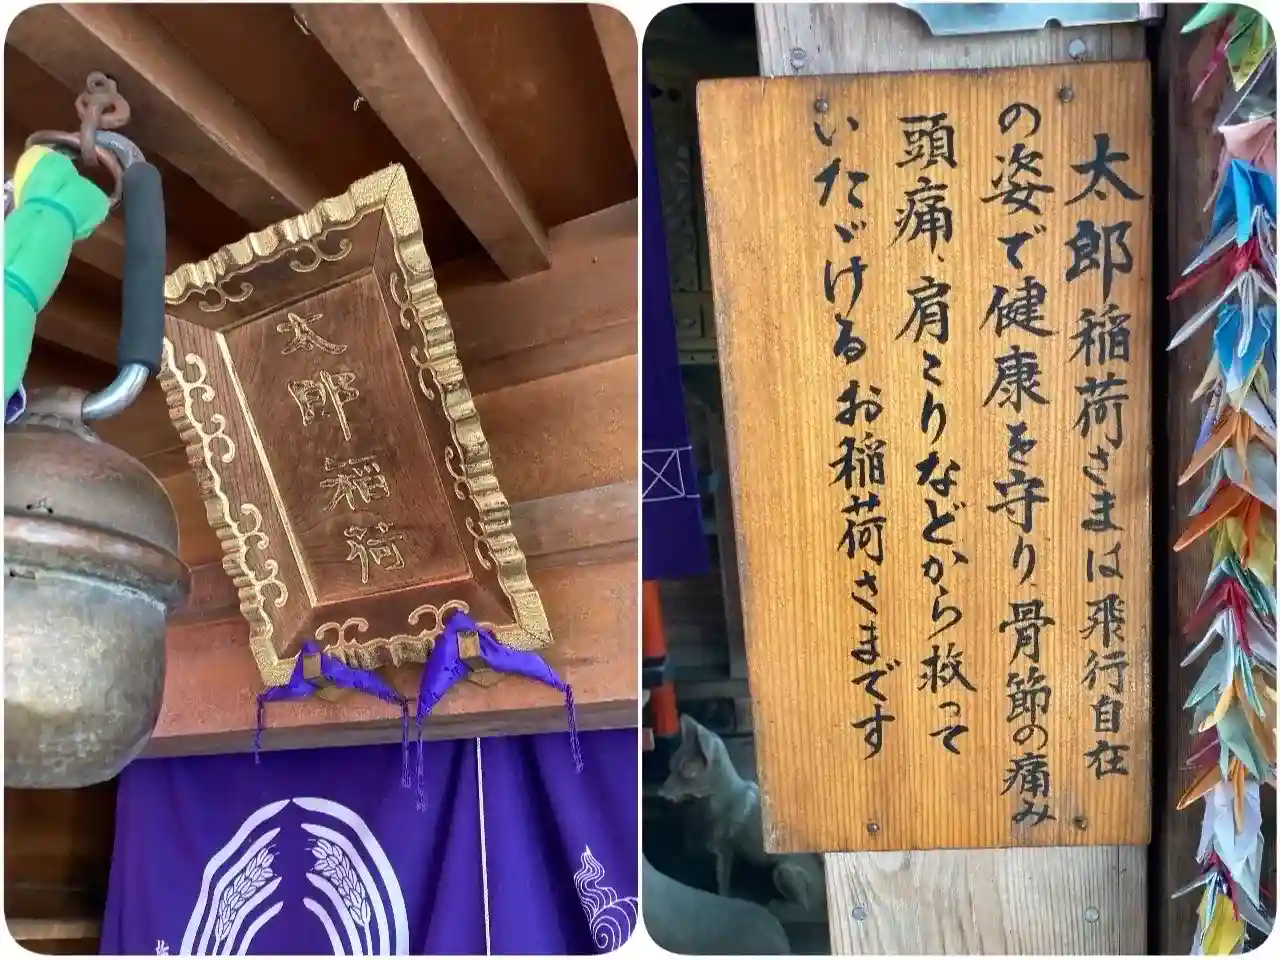 太郎稲荷
太郎稲荷さまは飛行自在
の姿で健康を守り骨節の痛み
頭痛、肩こりなどから救って
いたゞけるお稲荷さまです